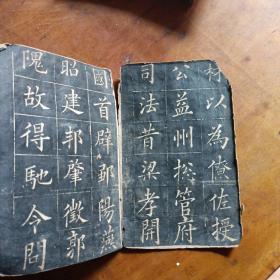 材以為僚佐授
公益州揔管府
司法昔梁孝開
國首辟鄒陽燕
昭建邦肇徵郭
隗故得馳令問